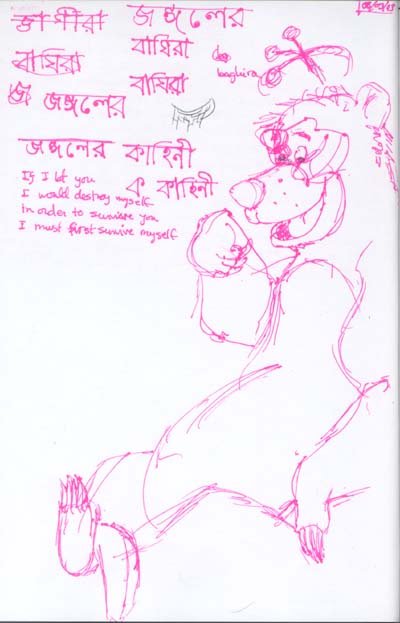 জঙ্গলের
বাঘিরা
বাঘিরা
বাঘিরা
baghira
জ জঙ্গলের
জঙ্গলের কাহিনী
ক কাহিনী
If I let you
I would destroy myself
In order to survive you
I must first survive myself